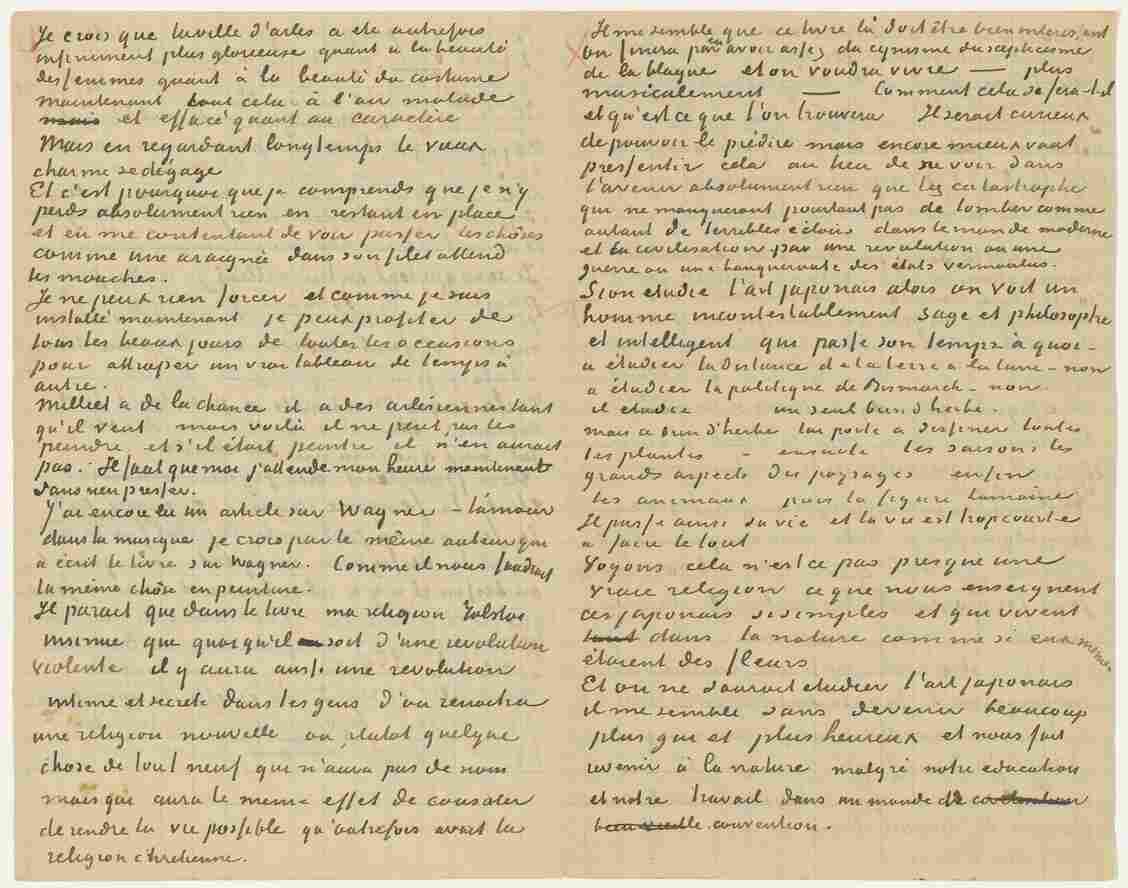 Je crois que la ville d'arles a ete autrefois
infiniment plus glorieuse quant a la beauté
des femmes quant à la beauté du costume
maintenant tout cela à l'air malade
mais et effacé quant au caractère
Mais en regardant longtemps le vieux
charme se dégage
Et c'est pourquoi que je comprends que je n'y
perds absolument rien en restant en place
et en me contentant de voir passer les chôses
comme une araignée dans son filet attend
les mouches.
Je ne peux rien forcer et comme je suis
installé maintenant je peux profiter de
tous les beaux jours de toutes les occasions
pour attraper un vrai tableau de temps à
autre.
Milliet a de la chance il a des arlésiennes tant
qu'il veut mais voilà il ne peut pas les
peindre et s'il était peintre il n'en aurait
pas. Il faut que moi j'attende mon heure maintenant
sans rien presser.
J'ai encore lu un article sur Wagner – l'amour
dans la musique je crois par le même auteur qui
a écrit le livre sur Wagner. Comme il nous faudrait
la même chôse en peinture.
Il parait que dans le livre ma religion Tolstoï
insinue que quoiqu'il en soit d'une revolution
violente il y aura aussi une revolution
intime et secrete dans les gens d'ou renaitra
une religion nouvelle ou plutot quelque
chose de tout neuf qui n'aura pas de nom
mais qui aura le meme effet de consoler
de rendre la vie possible qu'autrefois avait la
religion chretienne.
Il me semble que ce livre là doit être bien interessant
on finira par en avoir assez du cynisme du scepticisme
de la blague et on voudra vivre — plus
musicalement — Comment cela se fera-t-il
et qu'est ce que l'on trouvera Il serait curieux
de pouvoir le prédire mais encore mieux vaut
pressentir cela au lieu de ne voir dans
l'avenir absolument rien que les catastrophes
qui ne manqueront pourtant pas de tomber comme
autant de terribles éclairs dans le monde moderne
et la civilisation par une revolution ou une
guerre ou une banqueroute des états vermoulus.
Si on etudie l'art japonais alors on voit un
homme incontestablement sage et philosophe
et intelligent qui passe son temps à quoi –
a étudier la distance de la terre a la lune – non
a étudier la politique de Bismarck – non.
il etudie un seul brin d'herbe.
Mais ce brin d'herbe lui porte a dessiner toutes
les plantes – ensuite les saisons les
grands aspects des paysages enfin
les animaux puis la figure humaine
Il passe ainsi sa vie et la vie est trop courte
a faire le tout
Voyons cela n'est ce pas presque une
vraie religion ce que nous enseignent
ces japonais si simples et qui vivent
tout dans la nature comme si eux memes
étaient des fleurs
Et on ne saurait etudier l'art japonais
il me semble sans devenir beaucoup
plus gai et plus heureux et nous fait
revenir à la nature malgré notre education
et notre travail dans un monde de
convention.